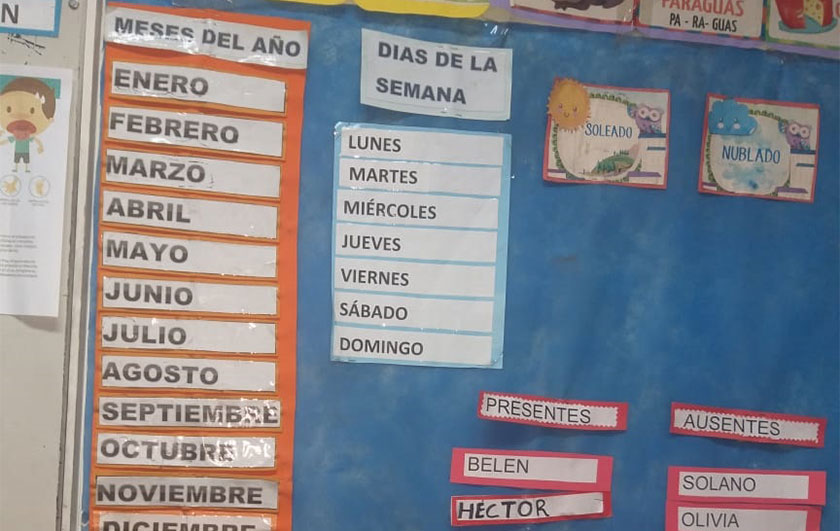 N
MESES DEL AÑO
ENERO
FEBRERO
MARZO
ABRIL
MAYO
JUNIO
JULIO
AGOSTO
SEPTIEMBRE
OCTUBRE
NOVIEMBRE
DICIEMBRE
DIAS DE LA
SEMANA
LUNES
MARTES
MIÉRCOLES
JUEVES
VIERNES
SÁBADO
DOMINGO
PARAGUAS
PA - RA - GUAS
SOLEADO
NUBLADO
PRESENTES
BELEN
HÉCTOR
AUSENTES
SOLANO
OLIVIA